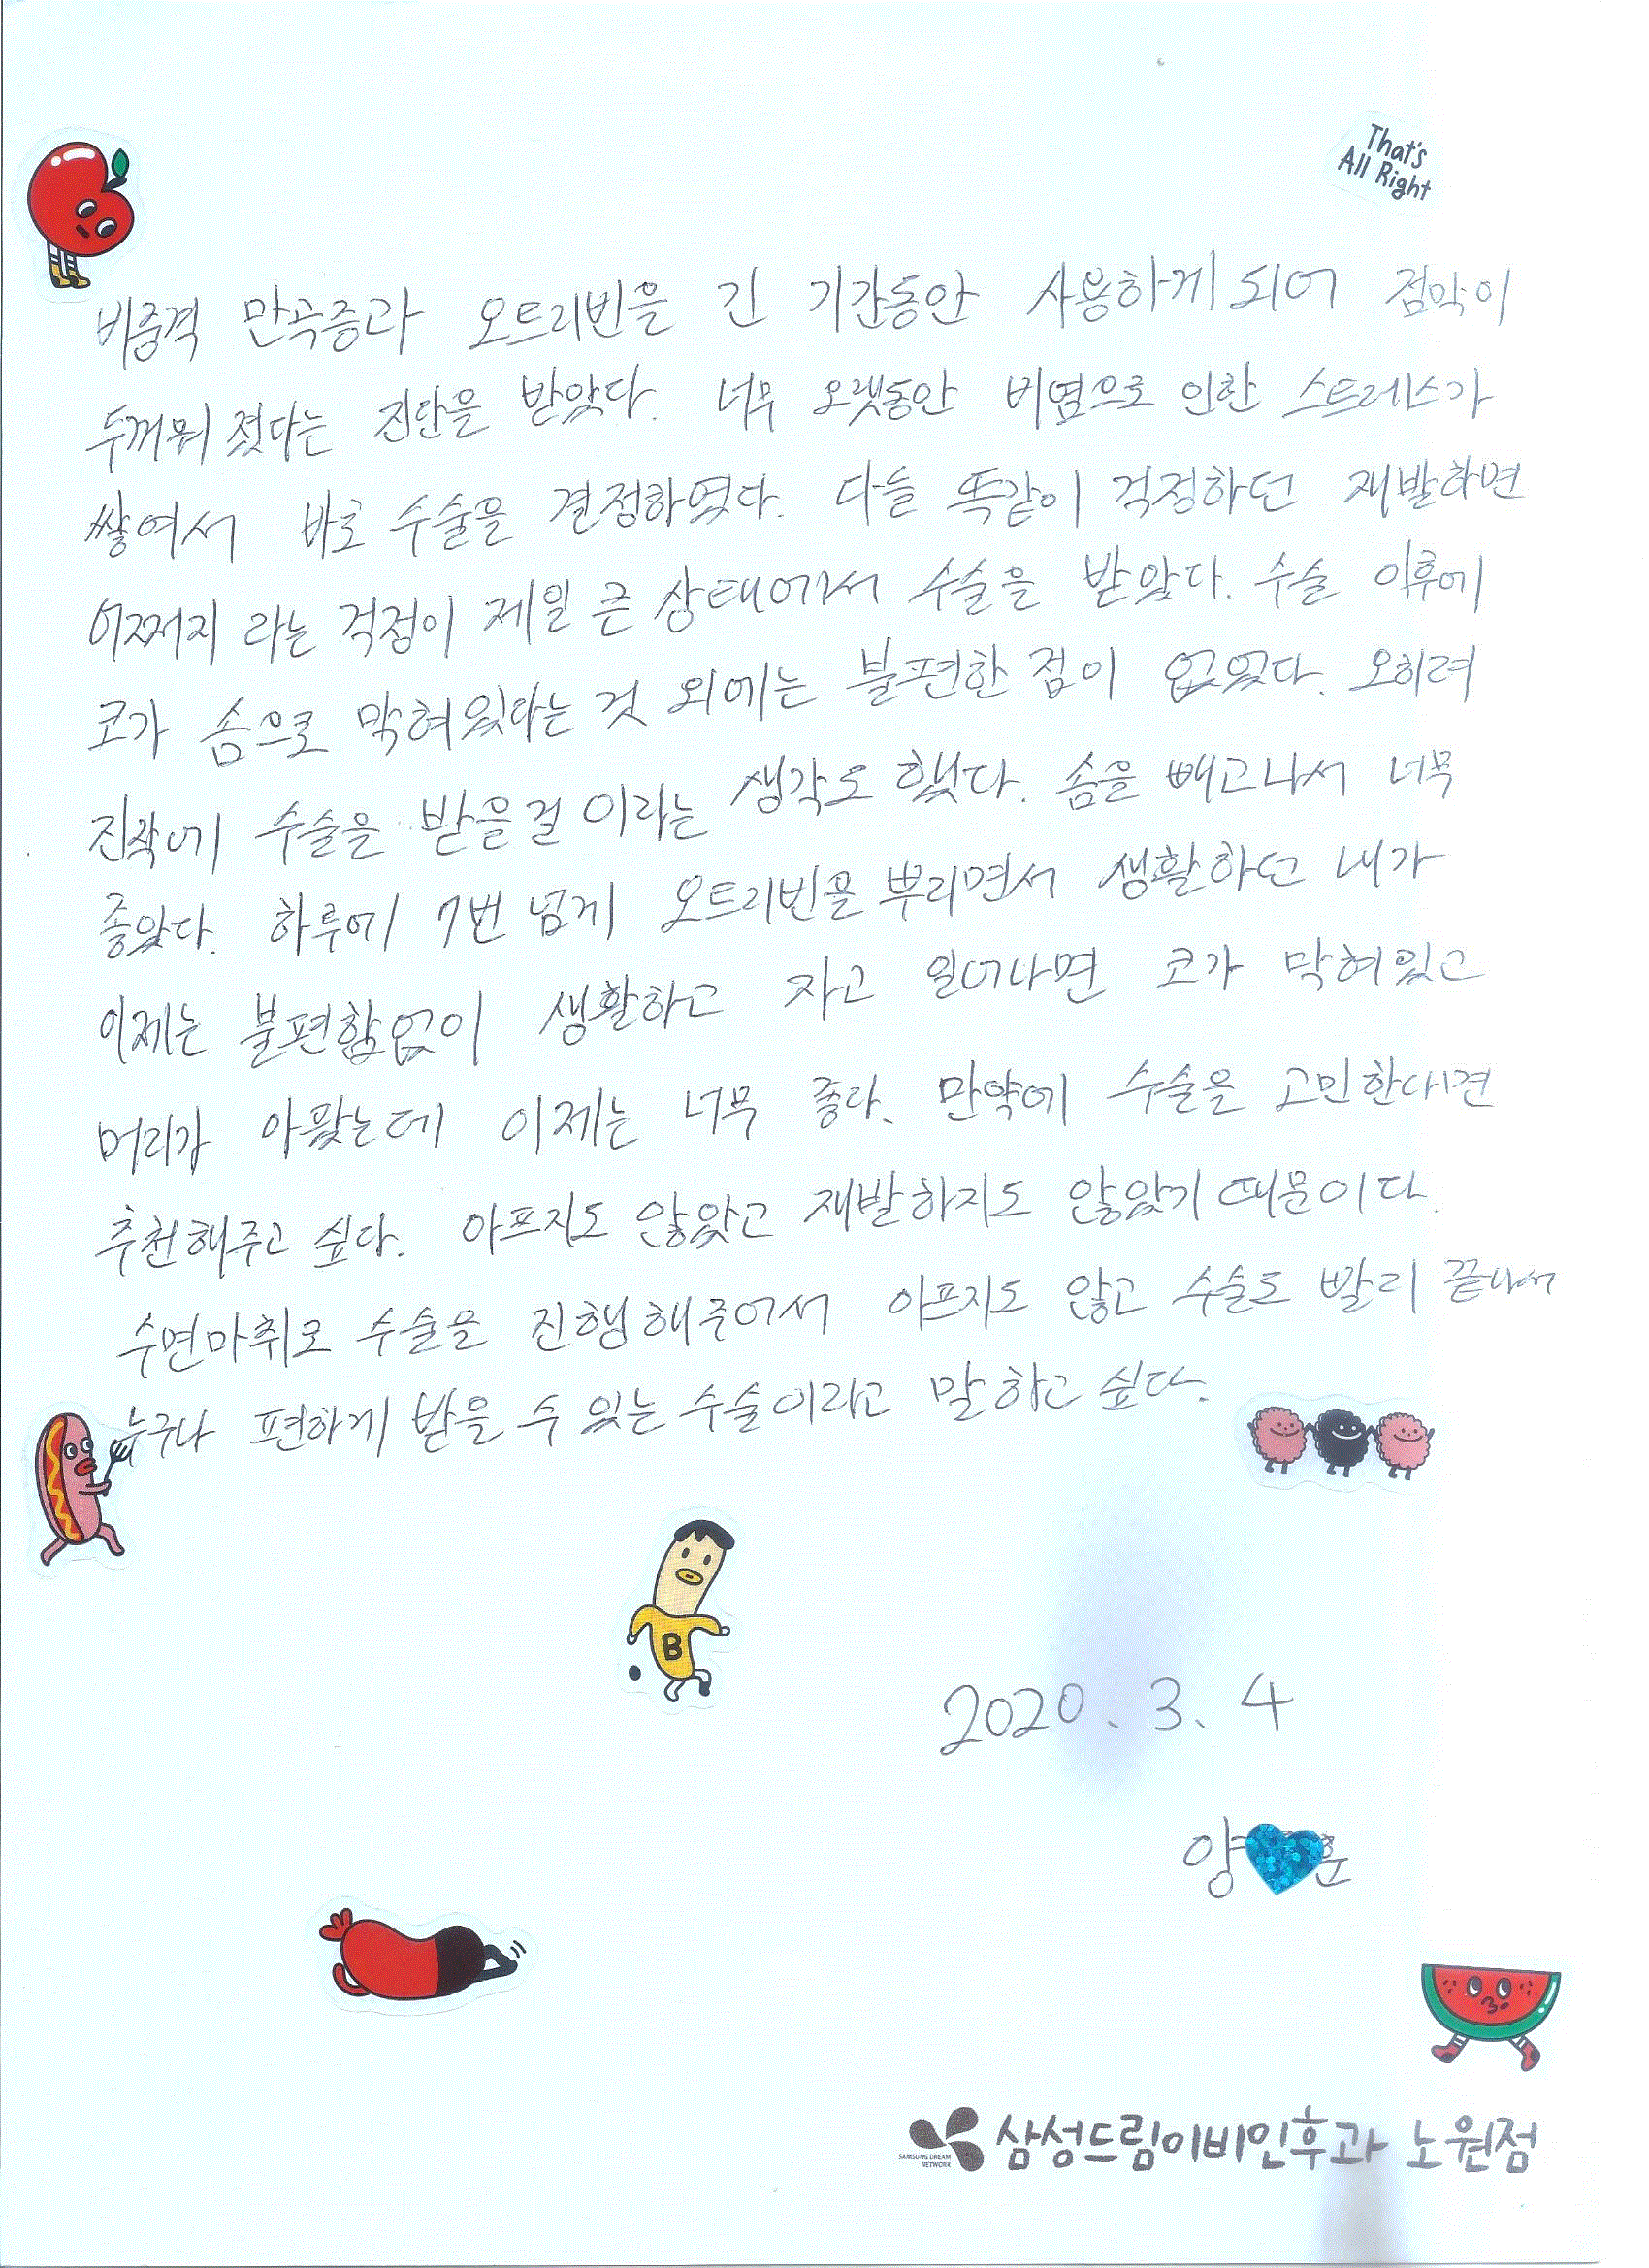 That's
All Right
비중격 만곡증과 오트리빈을 긴 기간동안 사용하게 되어 점막이
두꺼워 졌다는 진단을 받았다. 너무 오랫동안 비염으로 인한 스트레스가
쌓여서 바로 수술을 결정하였다. 다들 똑같이 걱정하던 재발하면
어쩌지 라는 걱정이 제일 큰 상태에서 수술을 받았다. 수술 이후에
코가 솜으로 막혀있다는 것 외에는 불편한 점이 없었다. 오히려
진작에 수술을 받을걸 이라는 생각도 했다. 솜을 빼고나서 너무
좋았다. 하루에 7번 넘게 오트리빈을 뿌리면서 생활하던 내가
이제는 불편함없이 생활하고 자고 일어나면 코가 막혀있고
머리가 아팠는데 이제는 너무 좋다. 만약에 수술을 고민한다면
추천해주고 싶다. 아프지도 않았고 재발하지도 않았기 때문이다.
수면마취로 수술을 진행해주어서 아프지도 않고 수술도 빨리 끝나서
누구나 편하게 받을 수 있는 수술이라고 말하고 싶다.
B
2020. 3. 4
양 훈
SAMSUNG DREAM
NETWORK
삼성드림이비인후과 노원점